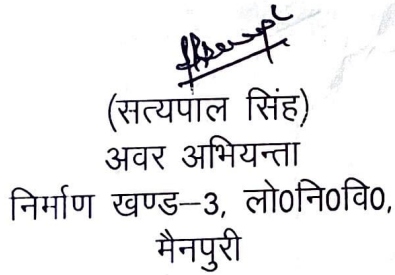 (सत्यपाल सिंह)
अवर अभियन्ता
निर्माण खण्ड–3, लो0नि0वि0,
मैनपुरी